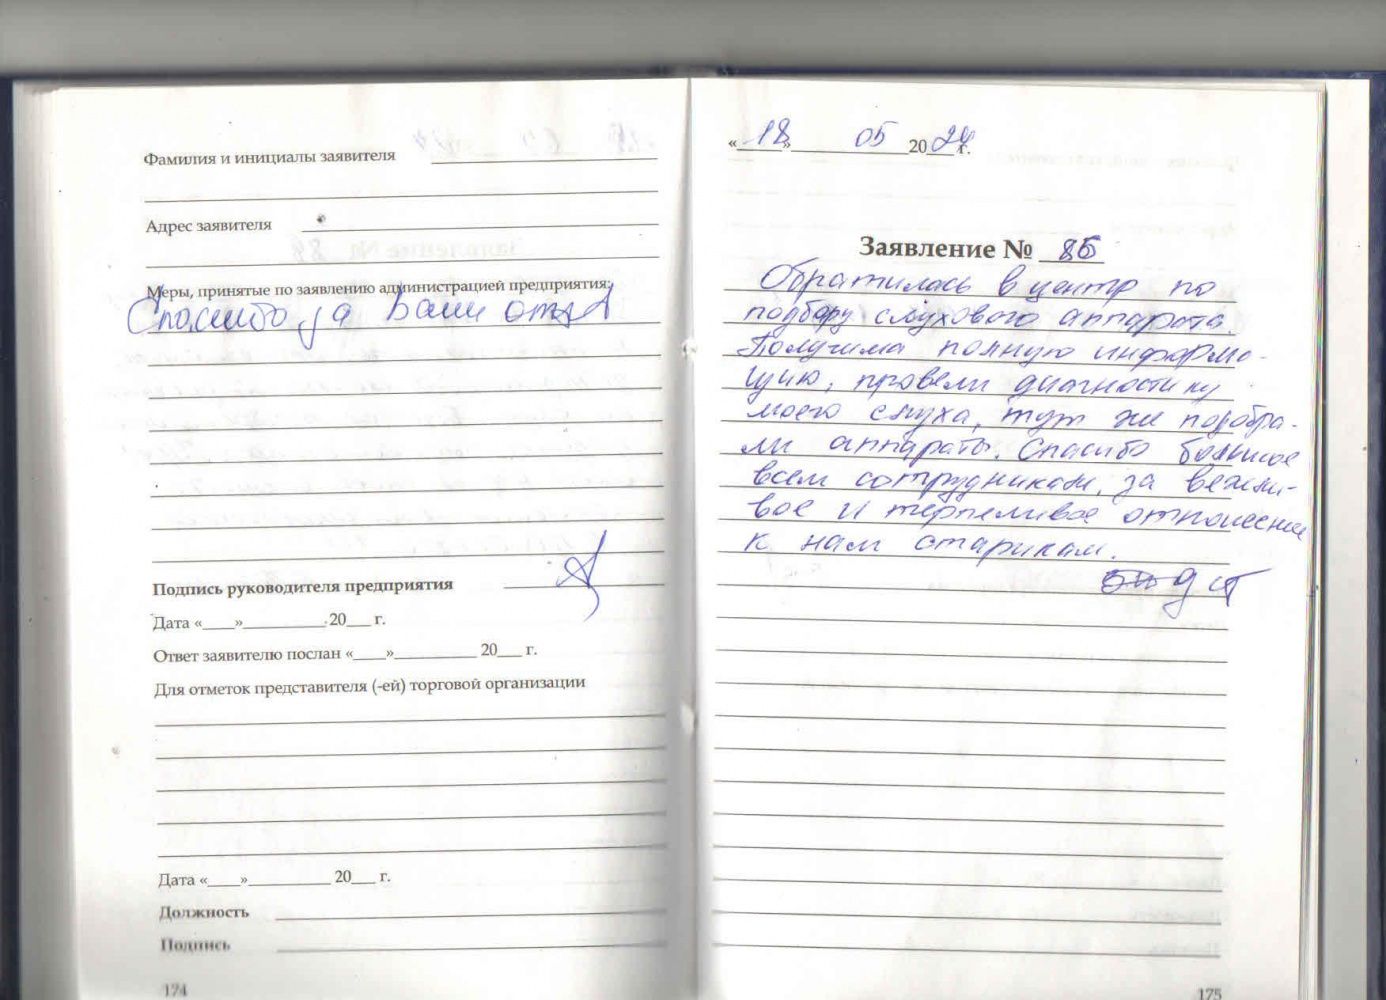 Фамилия и инициалы заявителя
Адрес заявителя
Меры, принятые по заявлению администрацией предприятия:
Спасибо за Ваш отзыв
Подпись руководителя предприятия
Дата «___»__________ 20___ г.
Ответ заявителю послан «___»__________ 20___ г.
Для отметок представителя (-ей) торговой организации
Дата «___»__________ 20___ г.
Должность
Подпись
174
«18» 05 2024 г.
Заявление № 85
Обратилась в центр по
подбору слухового аппарата.
Получила полную информа-
цию, провели диагностику
моего слуха, тут же подобра-
ли аппараты. Спасибо большое
всем сотрудникам, за вежли-
вое и терпеливое отношение
к нам старикам.
175